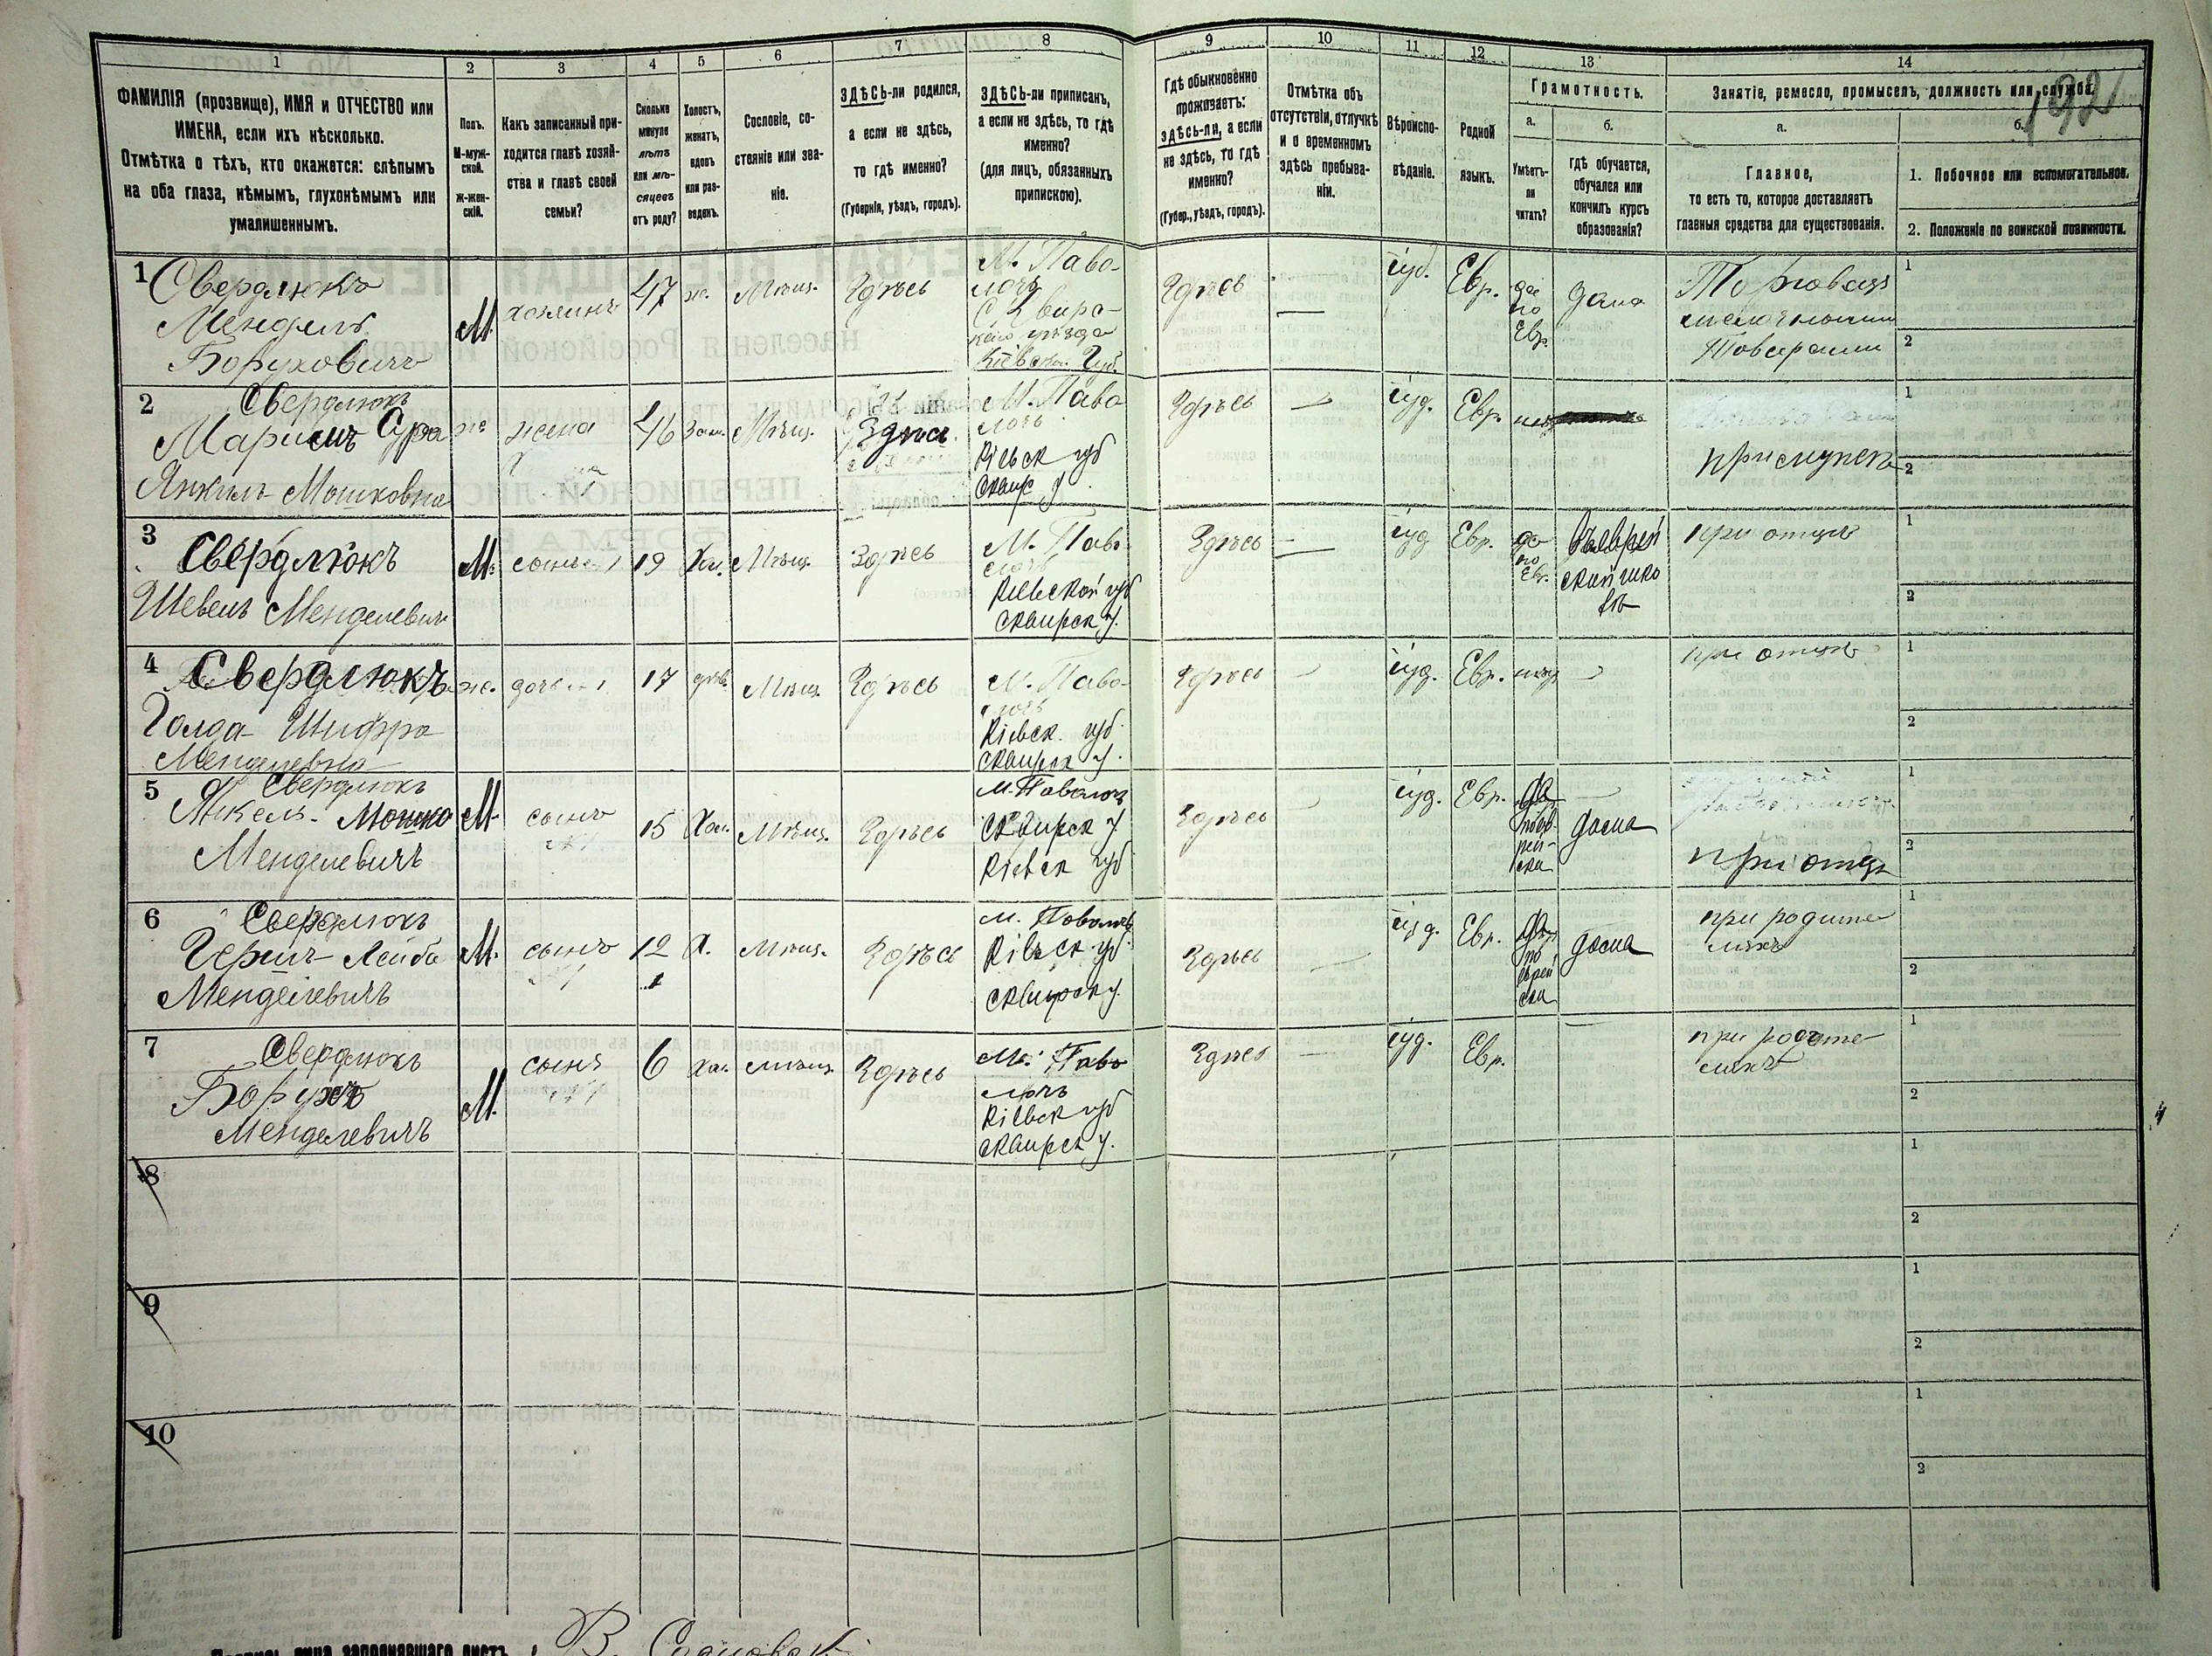 1 2 3 4 5 6 7 8 9 10 11 12 13 14
192
ФАМИЛІЯ (прозвище), ИМЯ и ОТЧЕСТВО или
ИМЕНА, если ихъ нѣсколько.
Отмѣтка о тѣхъ, кто окажется: слѣпымъ
на оба глаза, нѣмымъ, глухонѣмымъ или
умалишеннымъ.
Полъ.
М-муж-
ской.
Ж-жен-
скій.
Какъ записанный при-
ходится главѣ хозяй-
ства и главѣ своей
семьи?
Сколько
минуло
лѣтъ
или мѣ-
сяцевъ
отъ роду?
Холостъ,
женатъ,
вдовъ
или раз-
веденъ.
Сословіе, со-
стояніе или зва-
ніе.
ЗДѢСЬ-ли родился,
а если не здѣсь,
то гдѣ именно?
(Губернія, уѣздъ, городъ).
ЗДѢСЬ-ли приписанъ,
а если не здѣсь, то гдѣ
именно?
(для лицъ, обязанныхъ
припискою).
Гдѣ обыкновенно
проживаетъ:
здѣсь-ли, а если
не здѣсь, то гдѣ
именно?
(Губер., уѣздъ, городъ).
Отмѣтка объ
отсутствіи, отлучкѣ
и о временномъ
здѣсь пребыва-
ніи.
Вѣроиспо-
вѣданіе.
Родной
языкъ.
Грамотность.
а.
Умѣетъ-
ли
читать?
б.
гдѣ обучается,
обучался или
кончилъ курсъ
образованія?
Занятіе, ремесло, промыселъ, должность или служба.
а.
Главное,
то есть то, которое доставляетъ
главныя средства для существованія.
б.
1. Побочное или вспомогательное.
2. Положеніе по воинской повинности.
1
Свердлюкъ
Мендель
Боруховичъ
М.
хозяинъ
47
ж.
Мѣщ.
Здѣсь
М. Паво-
лочь
Сквирс-
каго уѣзда
Кіевской Губ.
Здѣсь
—
Іуд.
Евр.
да
по
Евр.
дома
Торговецъ
мелочными
Товарами
1
2
2
Свердлюкъ
Марiемъ Сура
Янкель-Мошковна
ж
жена
46
Зам.
Мѣщ.
Здѣсь.
М. Паво
лочь
Кіевск губ
Сквир у.
Здѣсь
—
іуд.
Евр.
нѣтъ
прислуга
1
2
3
Свердлюкъ
Шевель Менделевичъ
М.
сынъ
19
Хол.
Мѣщ.
Здѣсь
М. Паво-
лочь
Кіевской губ
Сквирск у.
Здѣсь
—
іуд
Евр.
да
по
Евр.
въ еврей
ской шко
лѣ
при отцѣ
1
2
4
Свердлюкъ
Голда-Шифра
Менделевна
ж.
дочь
17
дѣв.
Мѣщ.
Здѣсь
М. Паво-
лочь
Кіевск. губ.
Сквирск у.
Здѣсь
—
іуд.
Евр.
нѣтъ
—
при отцѣ
1
2
5
Свердлюкъ
Янкель-Мошко
Менделевичъ
М.
сынъ
15
Хол.
Мѣщ.
Здѣсь
М. Паволочь
Сквирск у
Кіевск губ
Здѣсь
—
іуд.
Евр.
да
по ев-
рей-
ски
дома
при отцѣ
1
2
6
Свердлюкъ
Гершъ-Лейба
Менделевичъ
М.
сынъ
12
Х.
Мѣщ.
Здѣсь
М. Паволочь
Кіевск губ.
Сквирск у.
Здѣсь
—
іуд.
Евр.
да
по
еврей
ски
дома
при родите
ляхъ
1
2
7
Свердлюкъ
Борухъ
Менделевичъ
М.
сынъ
6
Хол.
Мѣщ.
Здѣсь
М. Паво
лочь
Кіевск губ
Сквирск у.
Здѣсь
—
іуд.
Евр.
при родите
ляхъ
1
2
8
1
2
9
1
2
10
1
2
Подпись лица заполнявшаго листъ